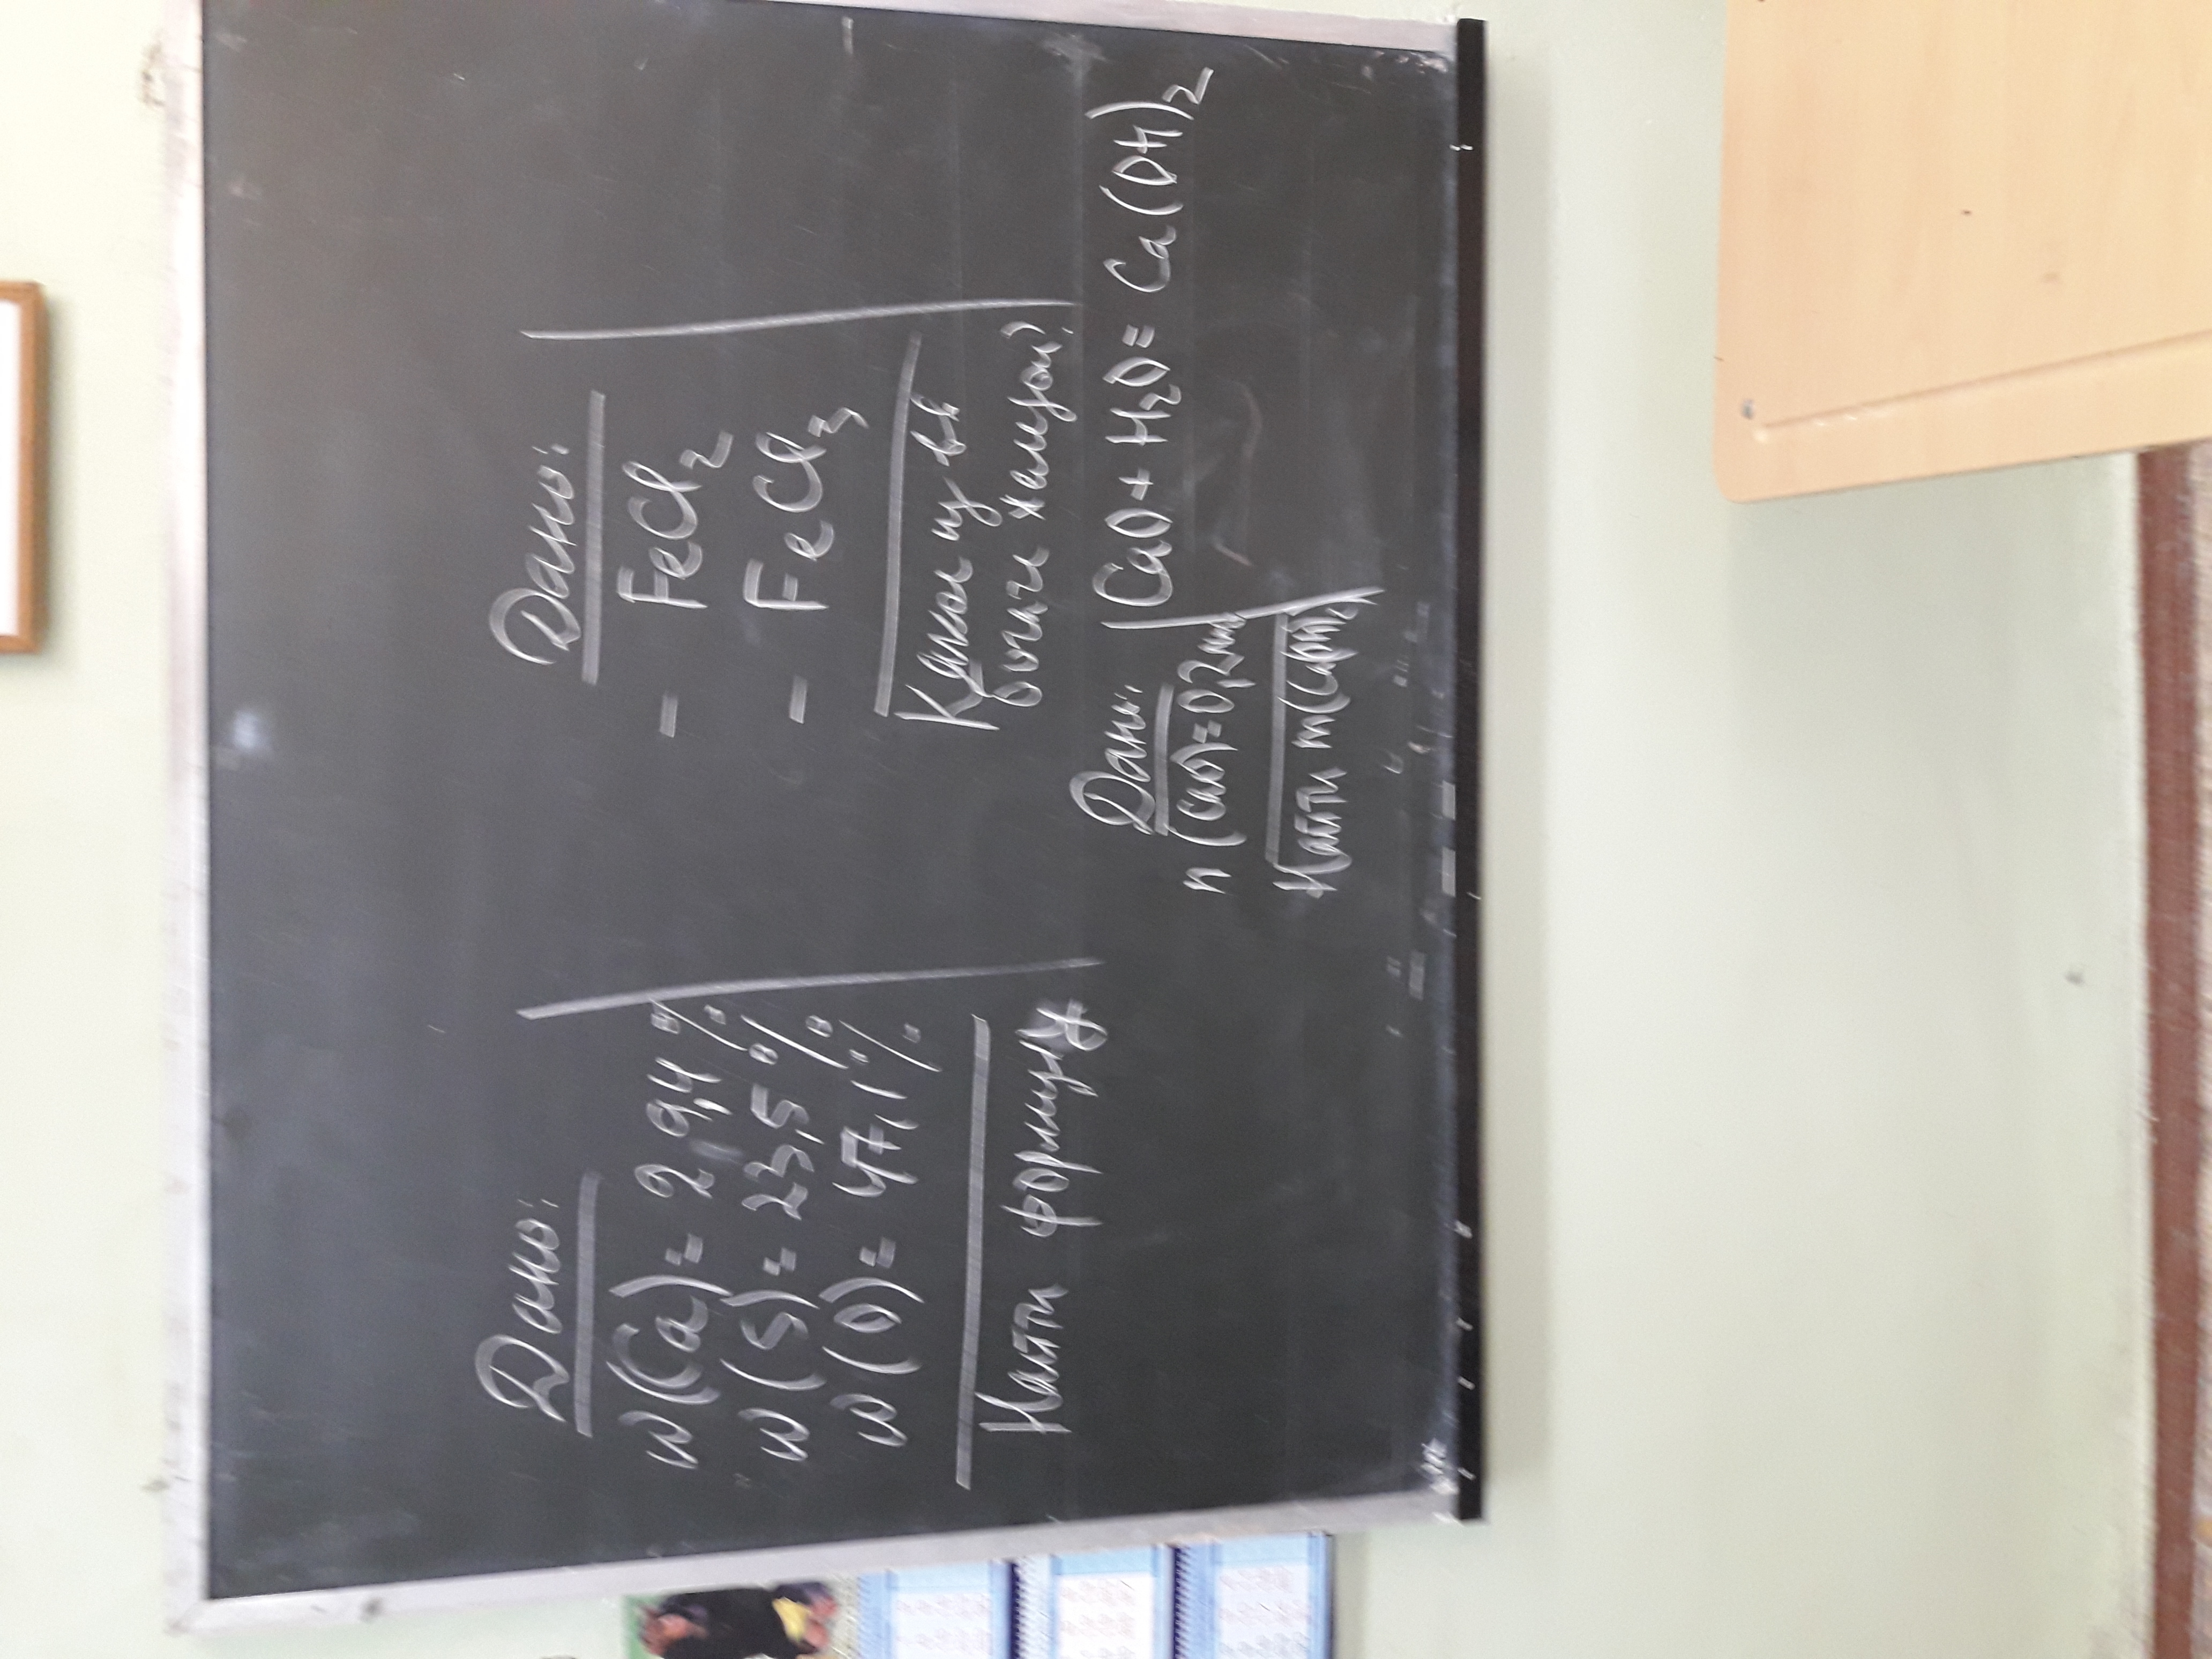 Дано:
w(Ca) = 29,4%
w(S) = 23,5%
w(O) = 47,1%
Найти формулу
Дано:
- FeCl2
- FeCl3
Какое из в-в
богаче железом?
Дано:
n(CaO)=0,2
Найти m(Ca(OH)2)
CaO + H2O = Ca(OH)2